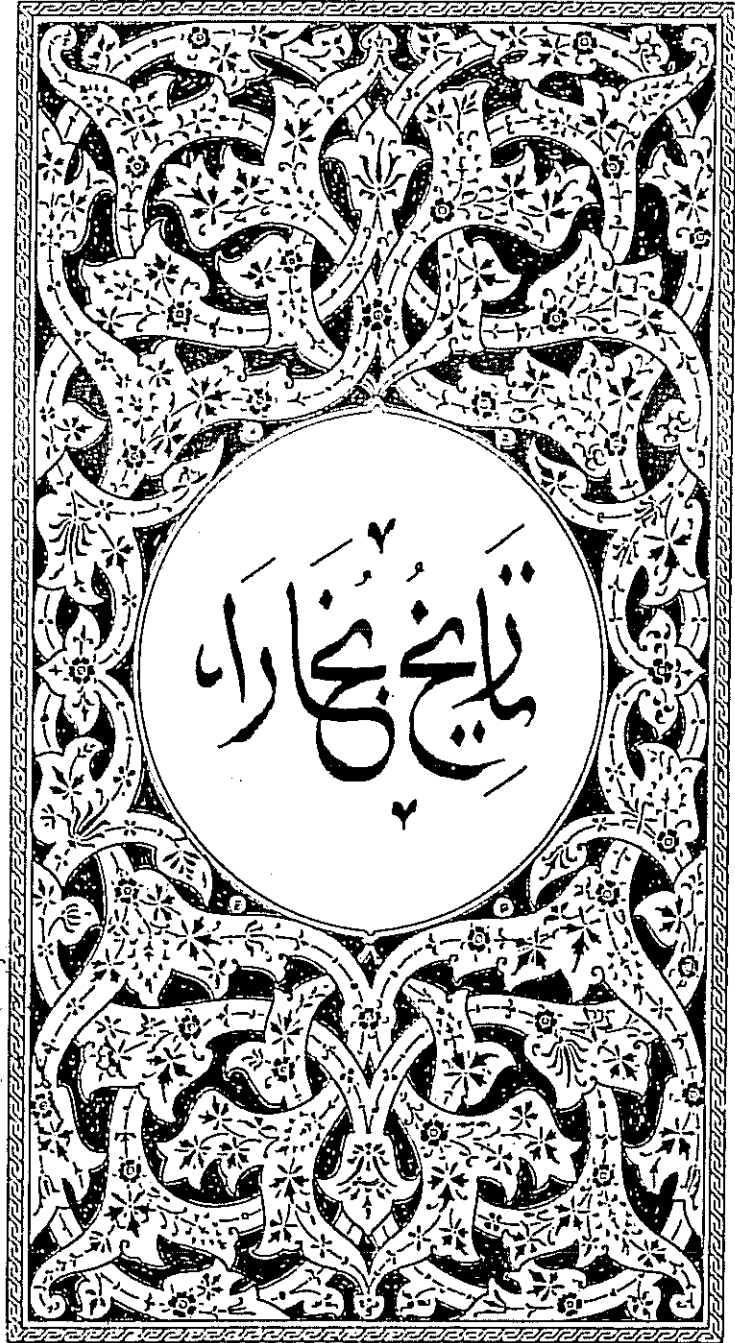 تاريخ بخارا